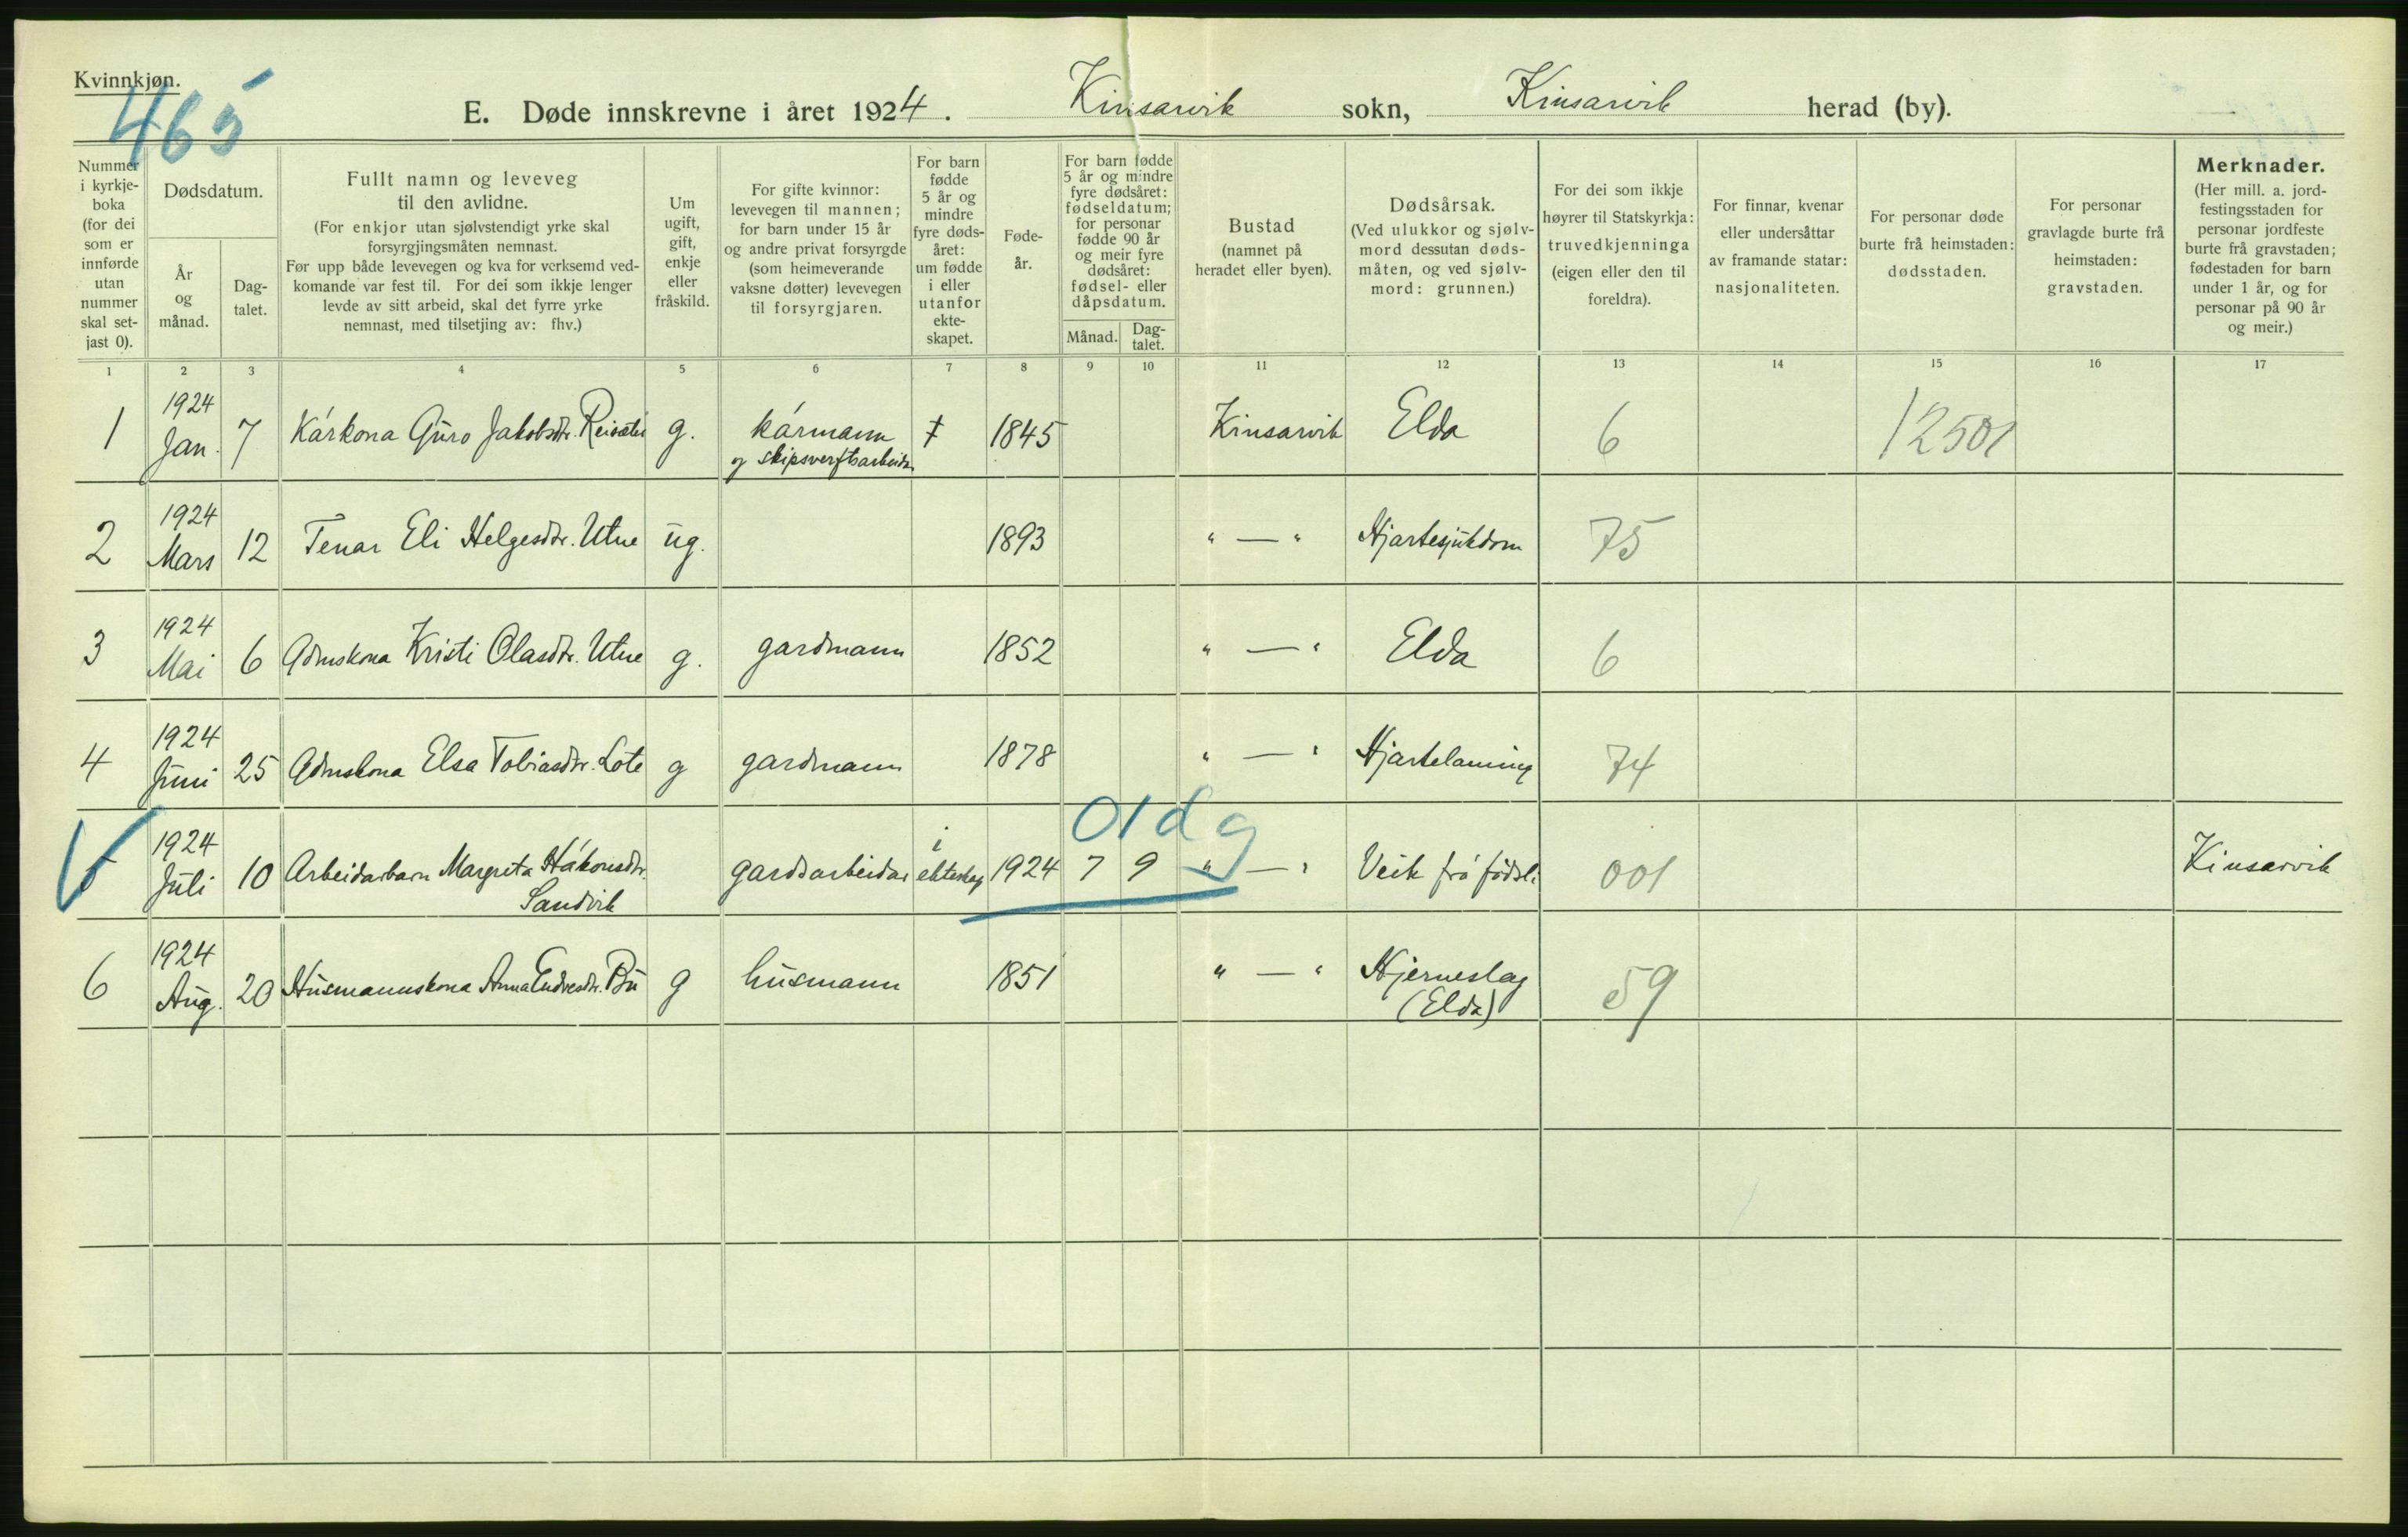 Kvinnkjøn.
465
E. Døde innskrevne i året 1924. Kinsarvik sokn, Kinsarvik herad (by).
Nummer i kyrkje-boka (for dei som er innførde utan nummer skal set-jast 0).
Dødsdatum.
År og månad.
Dag-talet.
Fullt namn og leveveg til den avlidne.
(For enkjor utan sjølvstendigt yrke skal forsyrgjingsmåten nemnast.
Før upp både levevegen og kva for verksemd ved-komande var fest til. For dei som ikkje lenger levde av sitt arbeid, skal det fyrre yrke nemnast, med tilsetjing av: fhv.)
Um ugift, gift, enkje eller fråskild.
For gifte kvinnor: levevegen til mannen; for barn under 15 år og andre privat forsyrgde (som heimeverande vaksne døtter) levevegen til forsyrgjaren.
For barn fødde 5 år og mindre fyre døds-året: um fødde i eller utanfor ekte-skapet.
Føde-år.
For barn fødde 5 år og mindre fyre dødsåret: fødseldatum; for personar fødde 90 år og meir fyre dødsåret: fødsel- eller dåpsdatum.
Månad.
Dag-talet.
Bustad (namnet på heradet eller byen).
Dødsårsak. (Ved ulukkor og sjølv-mord dessutan døds-måten, og ved sjølv-mord: grunnen.)
For dei som ikkje høyrer til Statskyrkja: truvedkjenninga (eigen eller den til foreldra).
For finnar, kvenar eller undersåttar av framande statar: nasjonaliteten.
For personar døde burte frå heimstaden: dødsstaden.
For personar gravlagde burte frå heimstaden: gravstaden.
Merknader. (Her mill. a. jord-festingsstaden for personar jordfeste burte frå gravstaden; fødestaden for barn under 1 år, og for personar på 90 år og meir.)
1 2 3 4 5 6 7 8 9 10 11 12 13 14 15 16 17
1 1924 Jan. 7 Kárkona Guro Jakobsdtr. g. kármann og skipsverftsarbeidar 1845 Kinsarvik Elda 6 12501
2 1924 Mars 12 Tenar Eli Helgesdtr. Utne ug. 1893 " — " Hjartesjukdom 75
3 1924 Mai 6 Gdmskona Kristi Olasdtr. Utne g. gardmann 1852 " — " Elda 6
4 1924 Juni 25 Gdmskona Elsa Tobiasdtr. Lote g gardmann 1878 " — " Hjartelamning 74
01dg
5 1924 Juli 10 Arbeidarbarn Margreta Håkonsdtr. Sandvik gardsarbeidar i ekteskap 1924 7 9 " — " Veik frå fødsli 001 Kinsarvik
6 1924 Aug. 20 Husmannskona Anna Endresdtr. Bu g husmann 1851 " — " Hjerneslag (Elda) 59